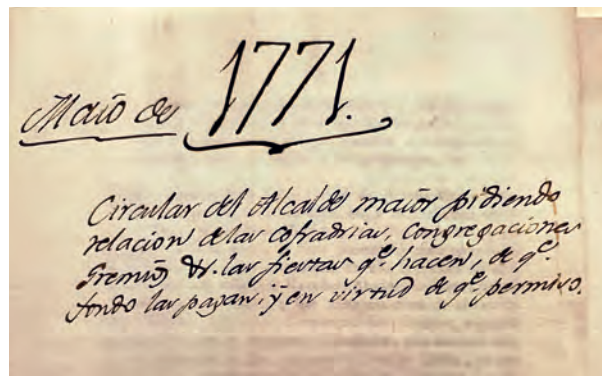 Maio de 1771.
Circular del Alcalde maior pidiendo
relacion delas cofradrias, Congregaciones
Gremios &r. las fiestas qe. hacen, de qe.
fondo las pagan, ÿ en virtud de qe. permiso.